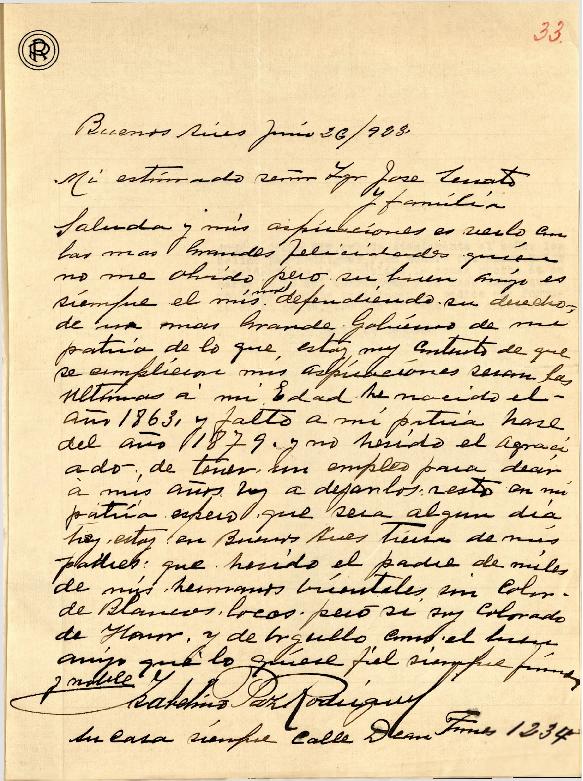 33
PR
Buenos Aires Junio 26/923
Mi estimado señor Ygr Jose Serrato
y familia
Saluda y mis aspiraciones es verlo en
las mas Grandes felicidades quien
no me olvido pero su buen amijo es
siempre el mismo defendiendo su derecho,
de un mas Grande Gobierno de mi
patria de lo que, estoy muy contento de que
se cumplieron mis aspiraciones seran las
ultimas á mi Edad he nacido el-
año 1863, y falto a mi patria hase
del año 1879. y no hesido el agraci
ado, de tener, un empleo para
á mis años. voy a dejar los restos en mi
patria espero que sera algun dia
hoy estoy en Buenos Aires tierra de mis
padres: que hesido el padre de miles
de mis hermanos orientales, sin Color-
de Blancos, locos. pero si soy Colorado
de Honor, y de orgullo como el buen
amijo que lo quiere fiel siempre firme
y noble
Paz Rodriguez
su casa siempre calle Dean Funes 1234